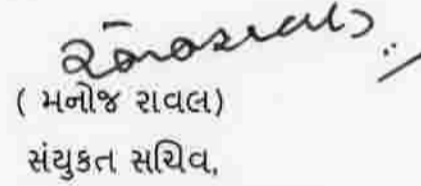 ( મનોજ રાવલ)
સંયુકત સચિવ,